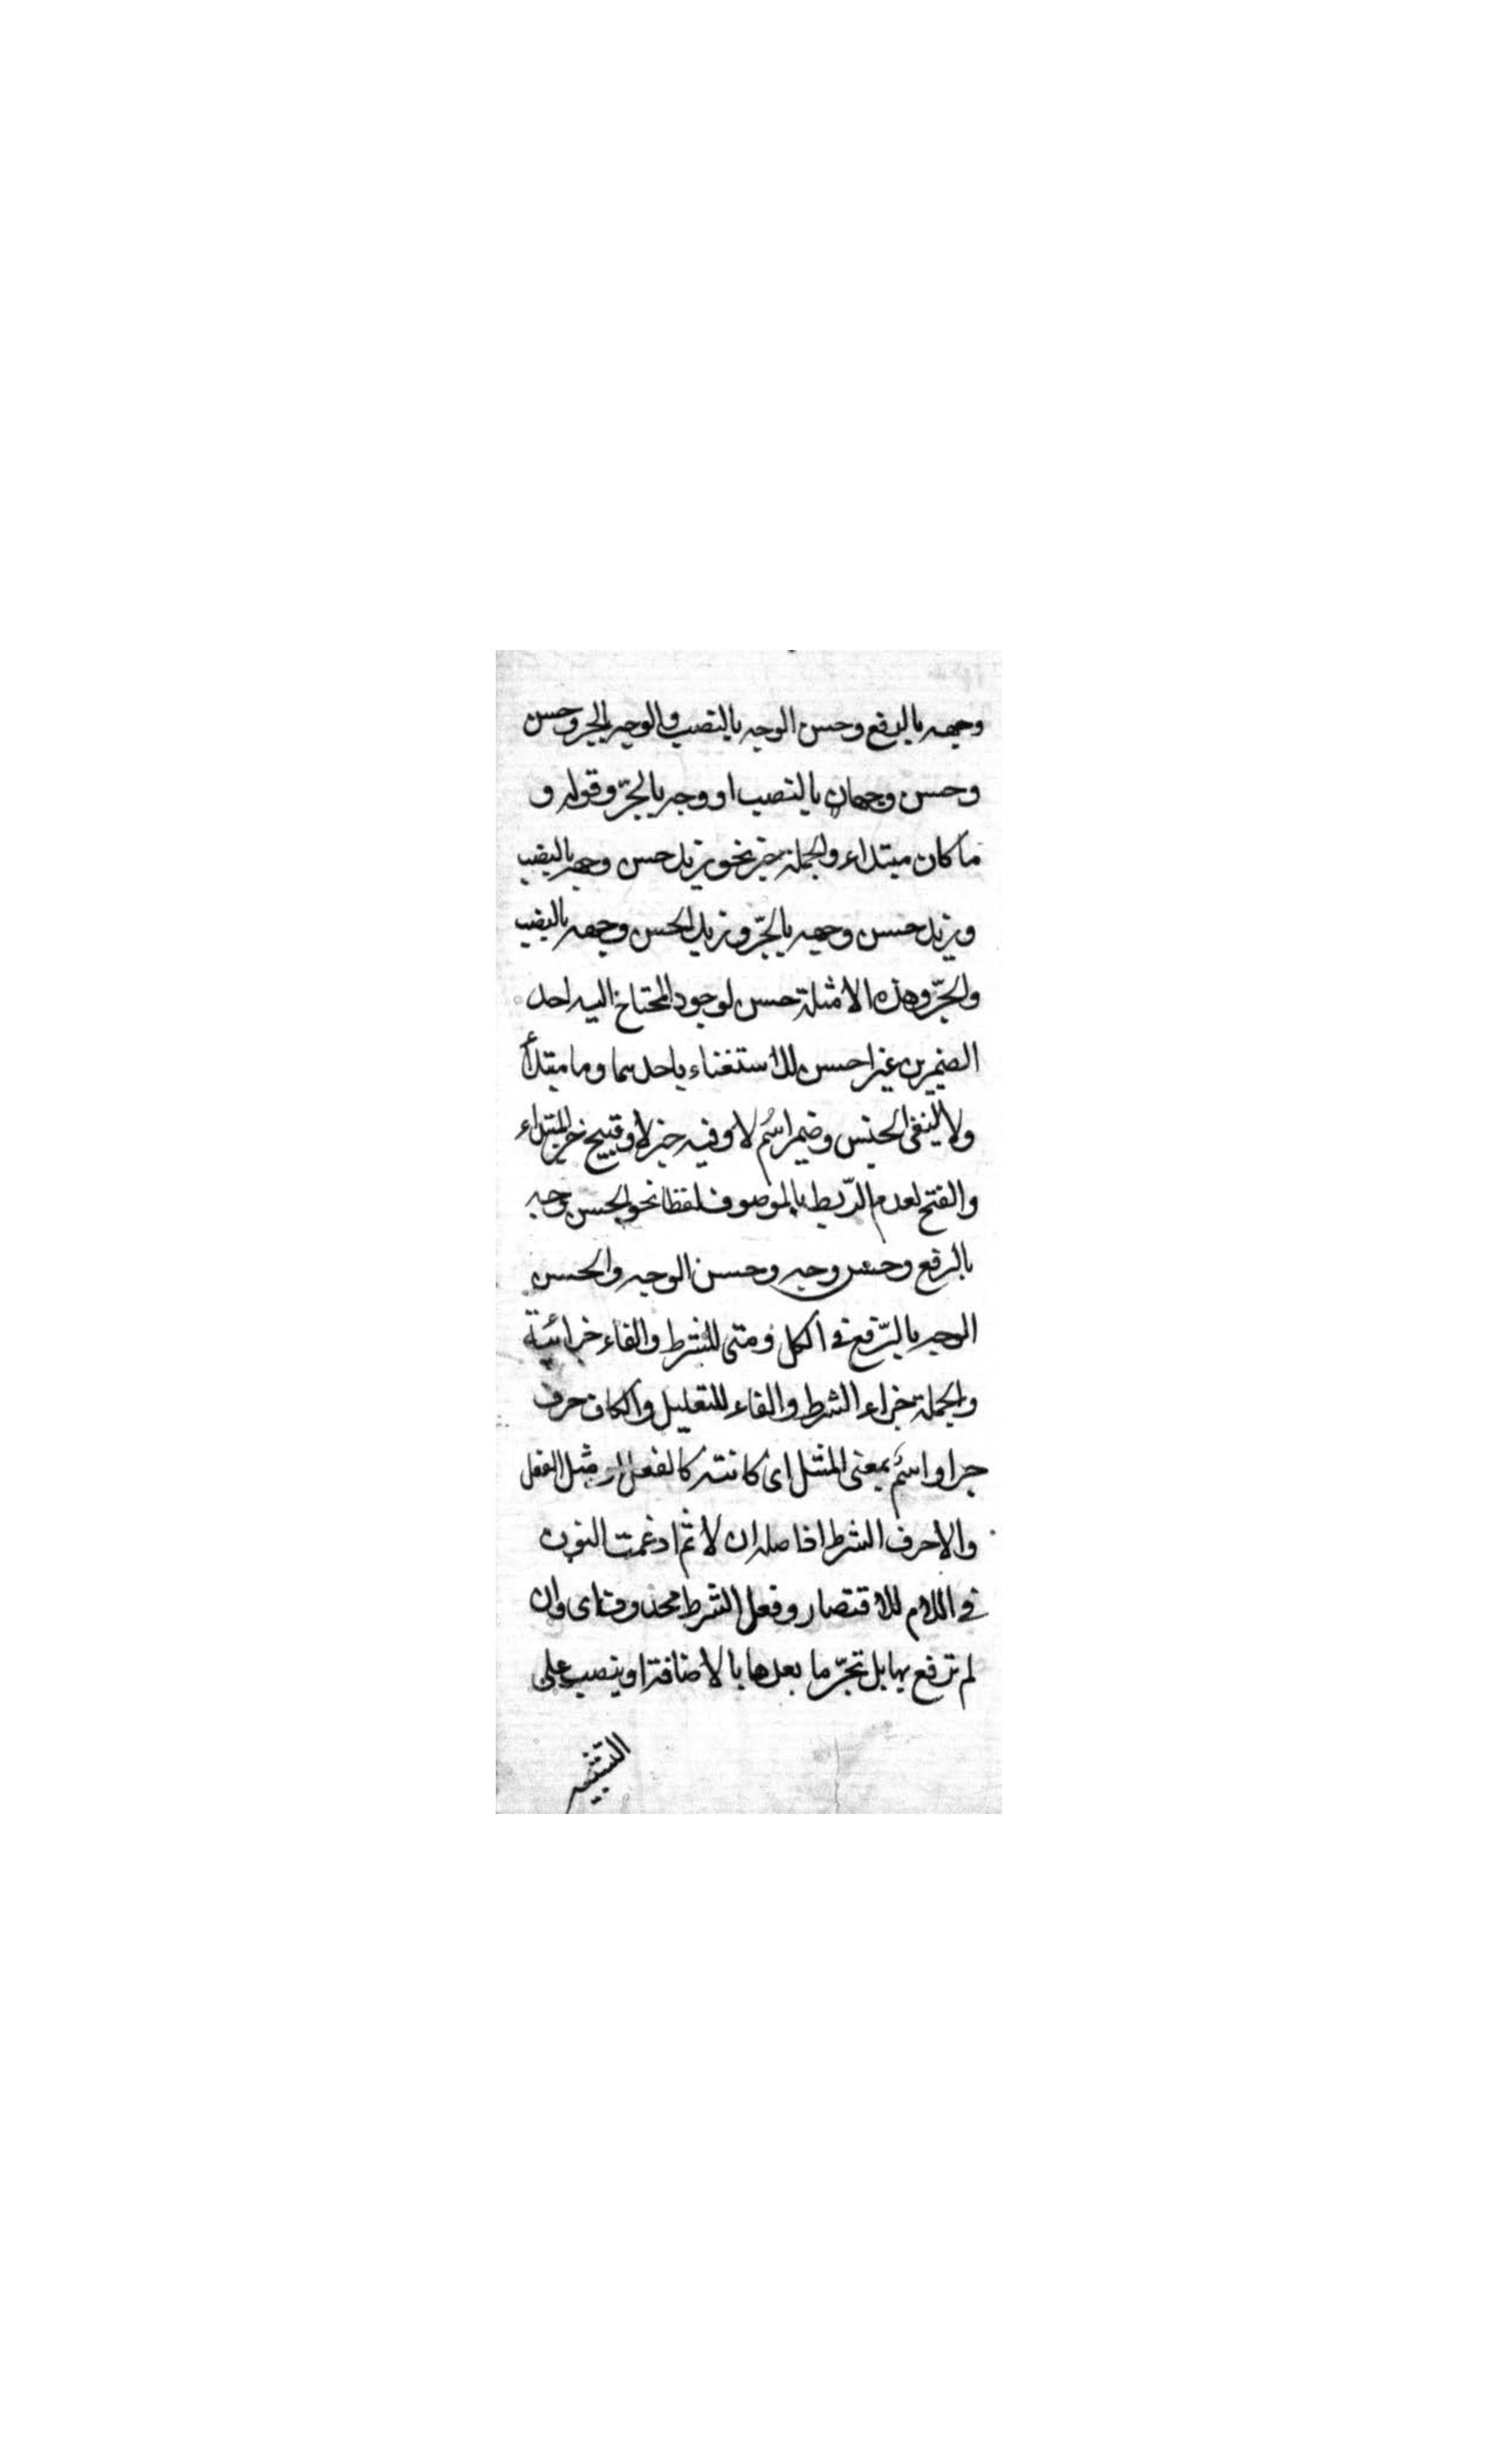 وجهه بالرفع وحسن الوجه بالنصب والوجه بالجر وحسن
وحسن وجهان بالنصب او وجه بالجرّ وقوله و
ما كان مبتداء والجملة خبر نحو زيد حسن وجهه بالنصب
وزيد حسن وجهه بالجرّ وزيد الحسن وجهه بالنصب
والجرّ وهذه الامثلة حسن لوجود المحتاج اليه احد
الضميرين غير احسن للاستغناء باحدهما وما مبتدأ
ولا لنفى الجنس وضمير اسُم لا وفيه خبر لا وقبيح خبر المبتداء
والفتح لعدم الرّبط بالموصوف لفظا نحو الحسن وجه
بالرفع وحسن وجه وحسن الوجه والحسن
الوجه بالرّفع فى الكل ومتى للشرط والفاء جزائية
والجملة جزاء الشرط والفاء للتعليل والكاف حرف
جر او اسُم بمعنى المثل اى كائنة كالفعل مثل الفعل
والا حرف الشرط اذ اصله ان لا ثم ادغمت النون
فى اللام للاقتصار وفعل الشرط محذوف اى وان
لم ترفع بها بل تجرّ ما بعدها بالاضافة او ينصب على
التشبيه